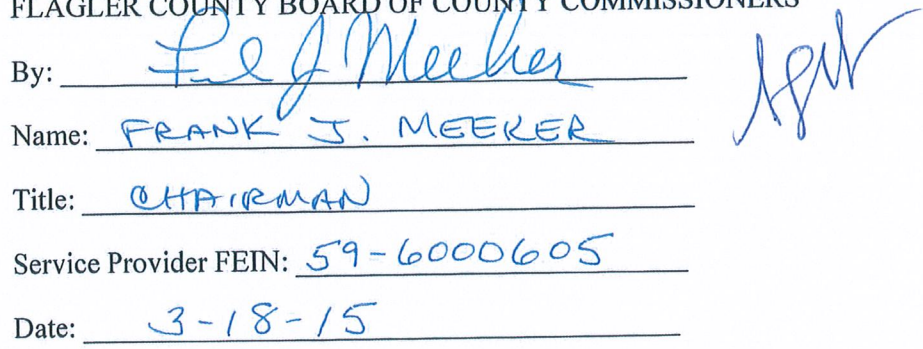 FLAGLER COUNTY BOARD OF COUNTY COMMISSIONERS
By: Frank J Meeker
Name: FRANK J. MEEKER
Title: CHAIRMAN
Service Provider FEIN: 59-6000605
Date: 3-18-15